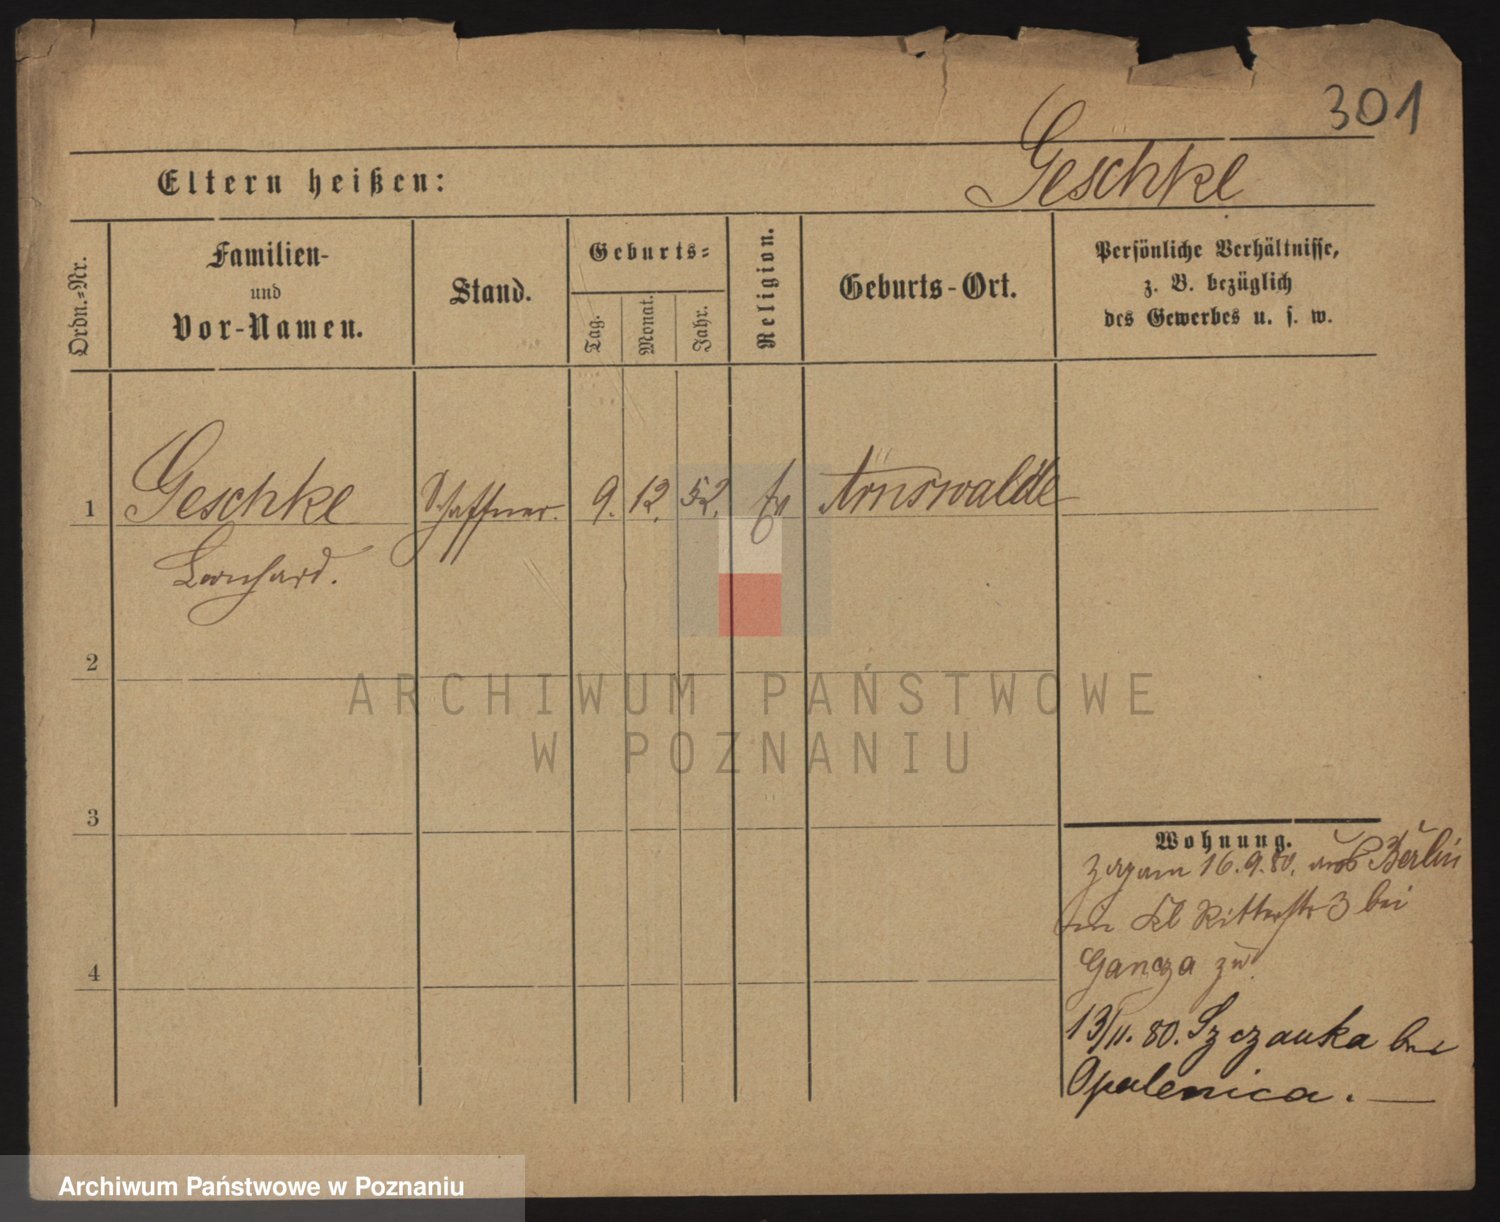 301
Geschke
Eltern heißen:
Ordn.=Nr.
Familien-
und
Vor-Namen.
Stand.
Geburts=
Tag.
Monat.
Jahr.
Religion.
Geburts-Ort.
Persönliche Verhältnisse,
z. B. bezüglich
des Gewerbes u. s. w.
1
Geschke
Schaffner.
9. 12. 52.
Ev
Arnswalde
2
3
4
ARCHIWUM PAŃSTWOWE
W POZNANIU
Wohnung.
16.9.80. aus Berlin
Kl Ritterstr 3 bei
Gancza zu
13/11. 80. bei
Opalenica.
Archiwum Państwowe w Poznaniu